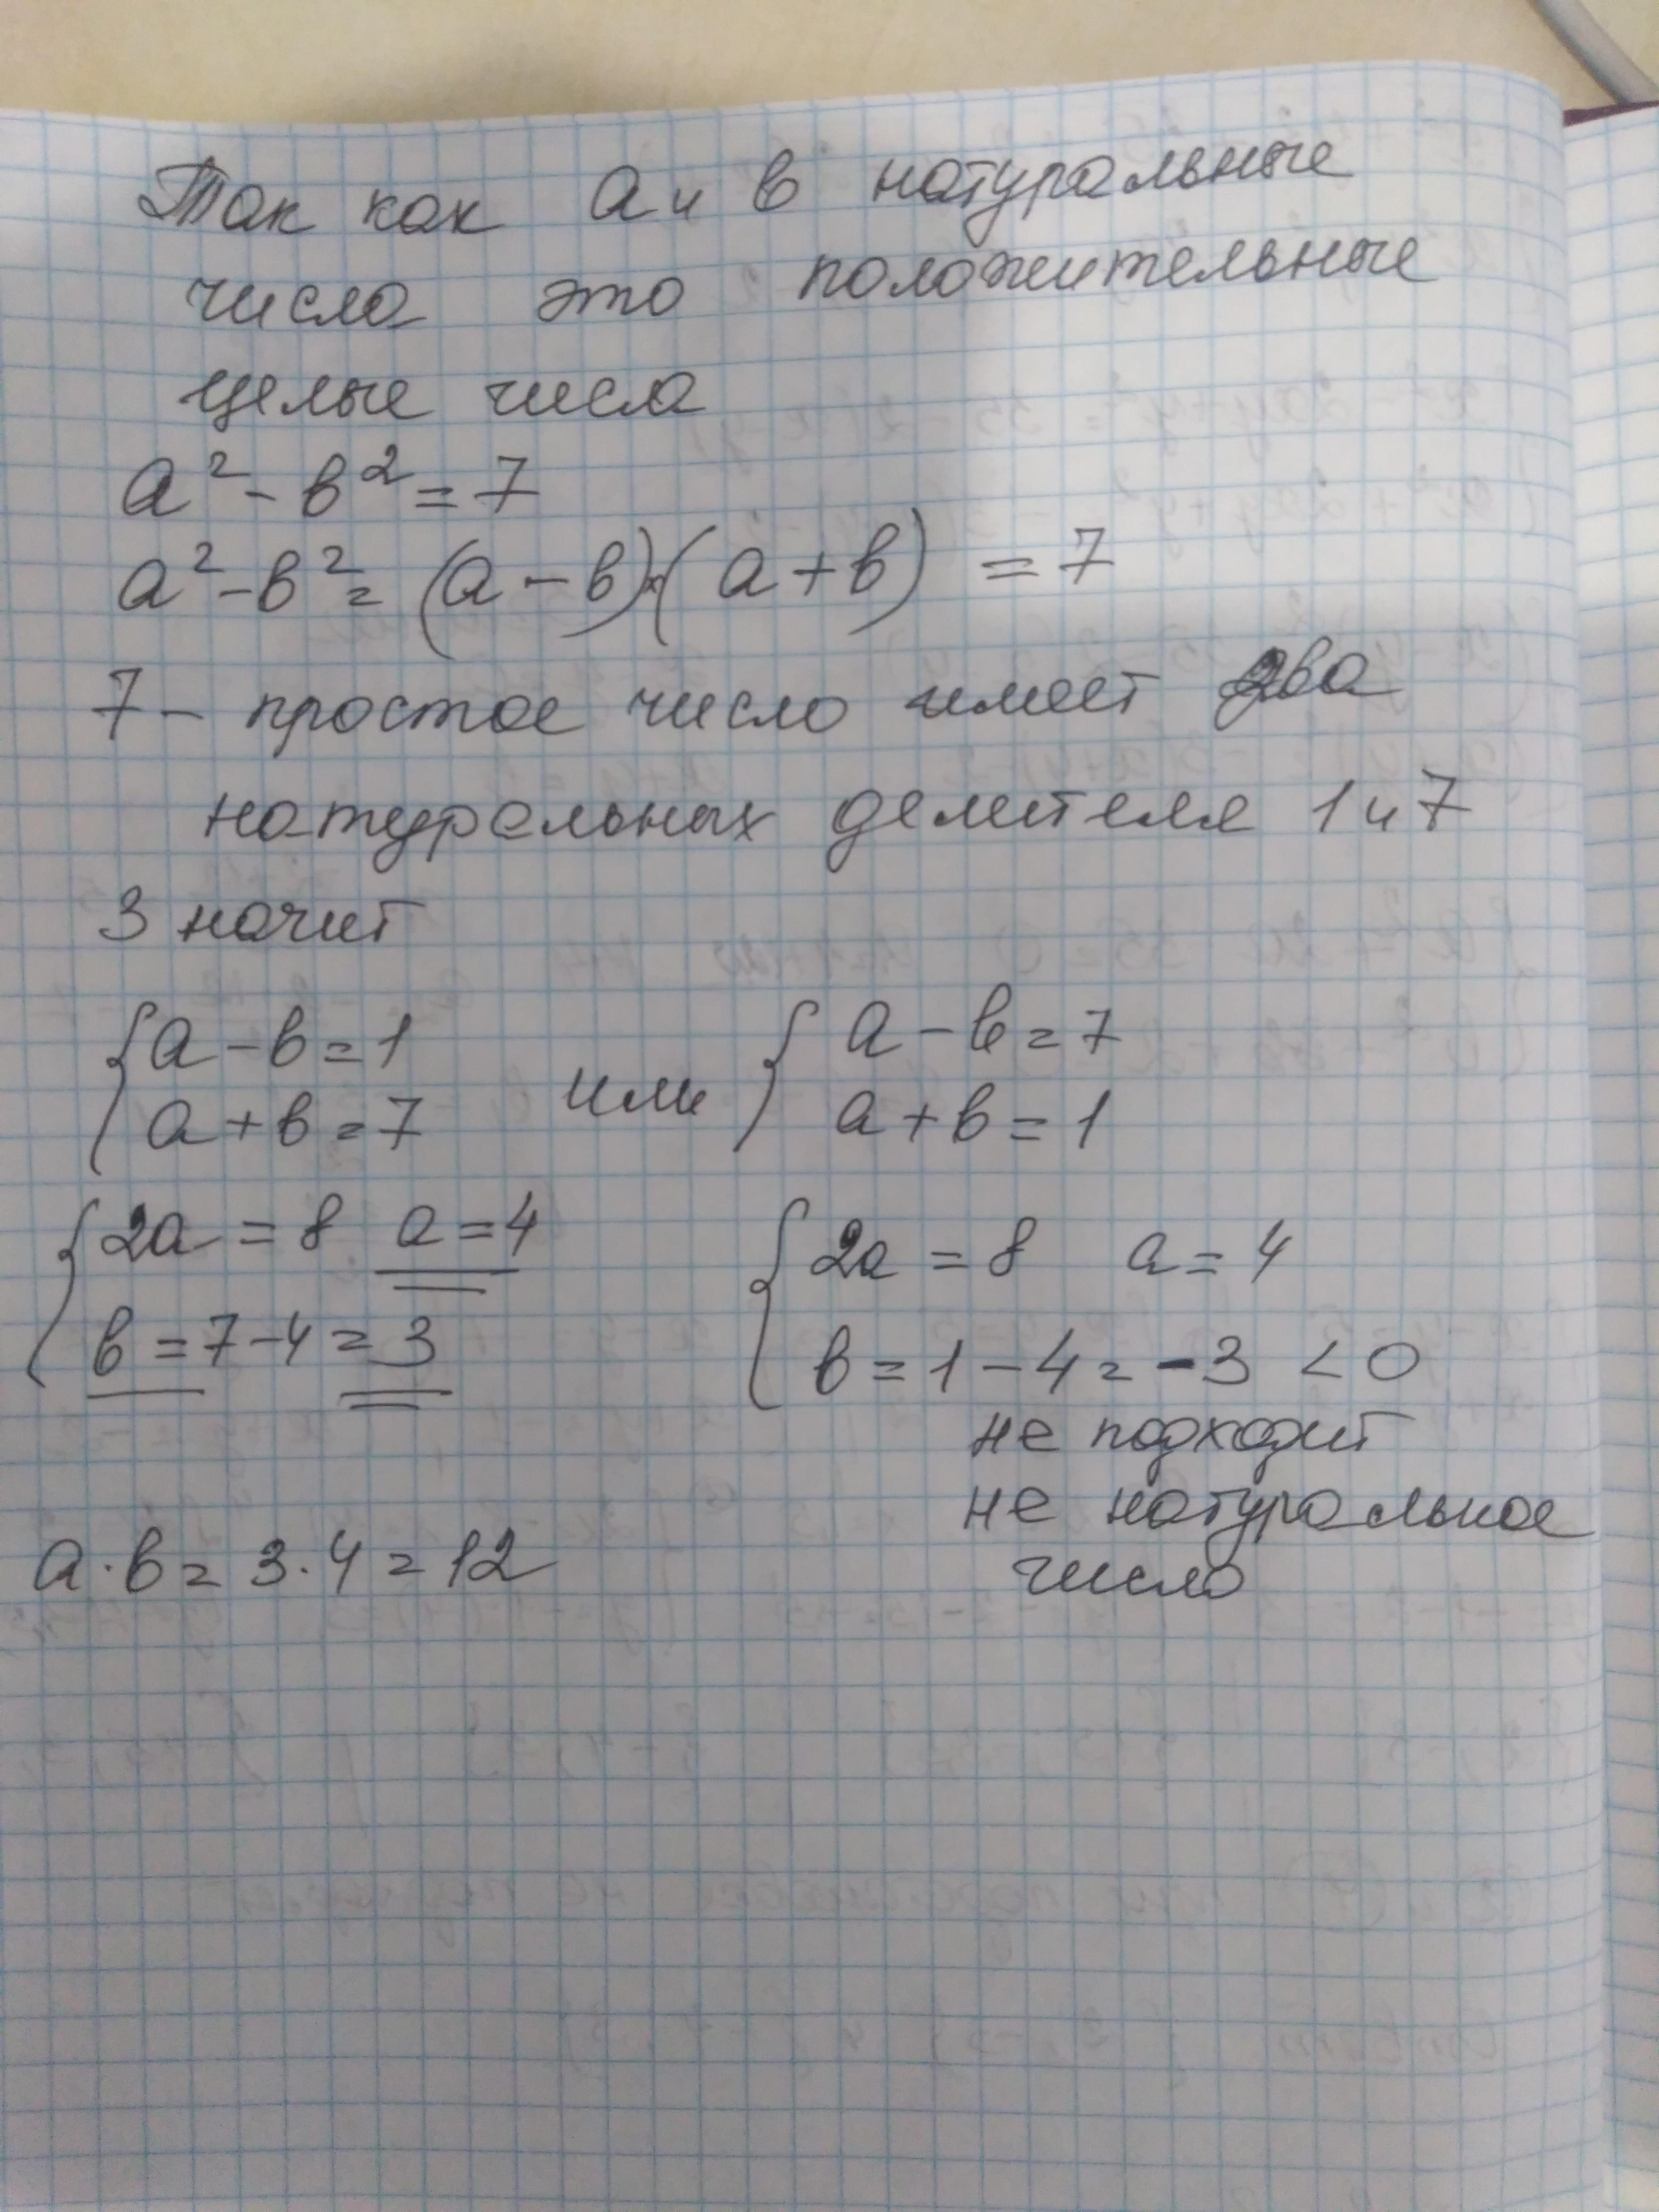 Так как a и b натуральные
числа это положительные
целые числа
a² - b² = 7
a² - b² = (a - b)·(a + b) = 7
7 - простое число имеет два
натуральных делителя 1 и 7
Значит
{ a - b = 1 или { a - b = 7
a + b = 7 a + b = 1
{ 2a = 8 a = 4 { 2a = 8 a = 4
b = 7 - 4 = 3 b = 1 - 4 = -3 < 0
не подходит
не натуральное
число
a · b = 3 · 4 = 12